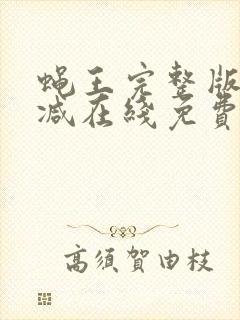 蝇王完整版
减在綫免費
高須賀由枝